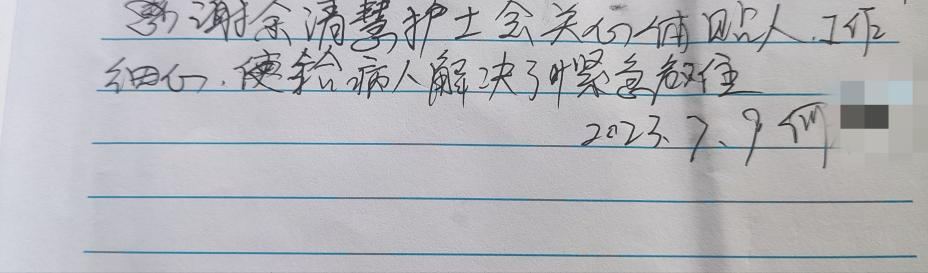 感谢余清慧护士会关心体贴人.工作
细心.便给病人解决了紧急危难
2023.7.9 何